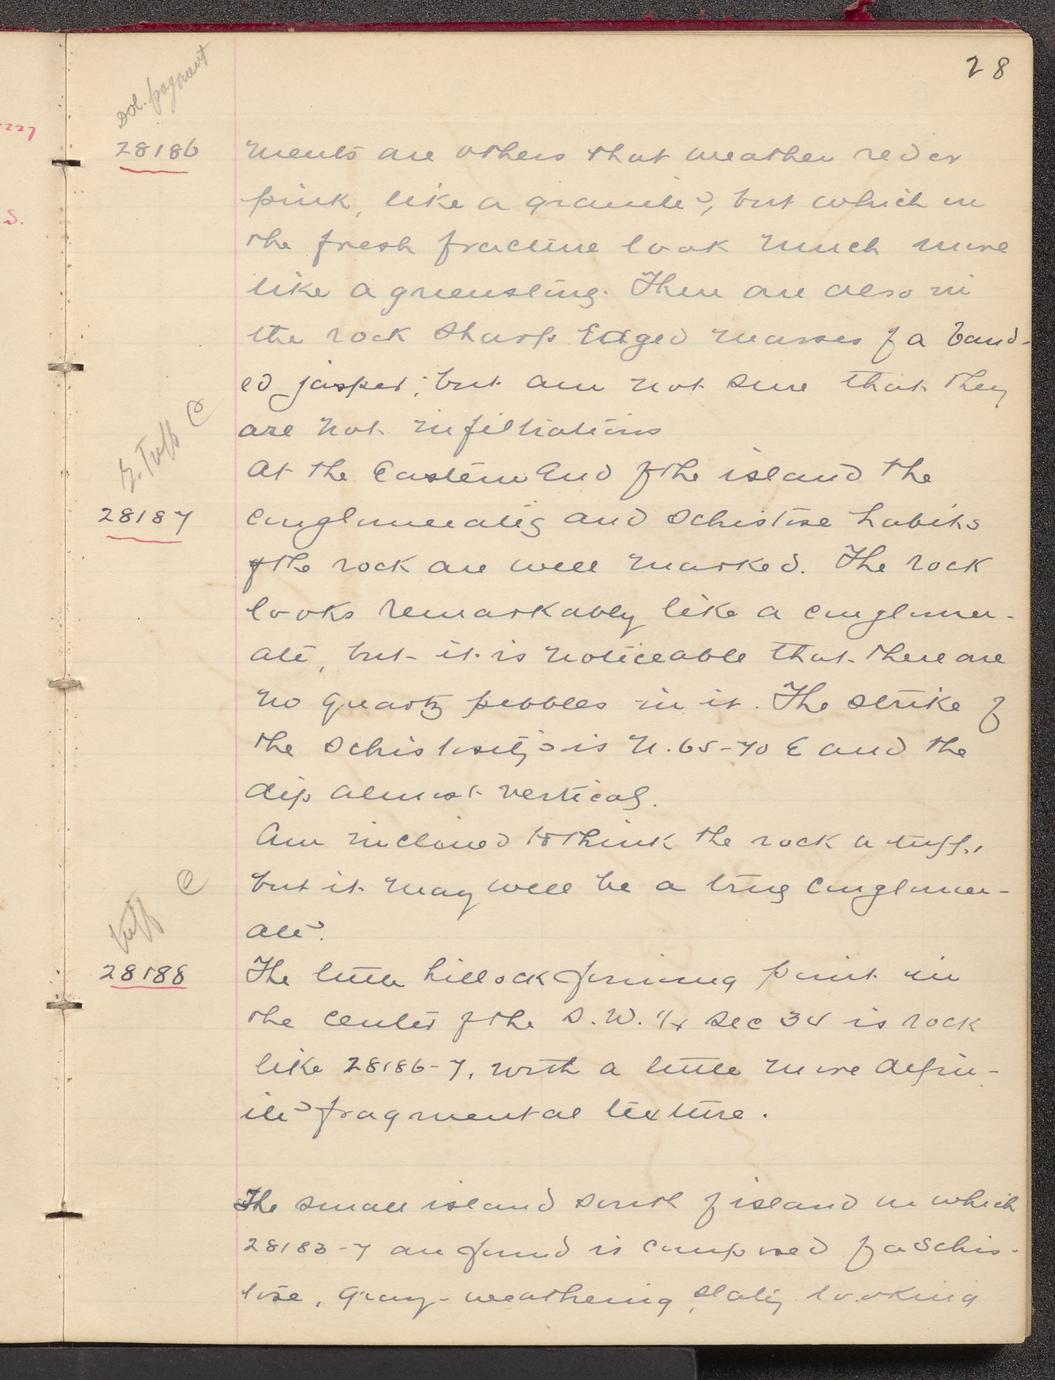 28
28186
ments are others that weather red or
pink, like a granite, but which in
the fresh fracture look much more
like a greenstone. There are also in
the rock sharp Edged masses of a band-
ed jasper; but am not sure that they
are not infiltrations
S. Tuff C
At the Eastern End of the island the
28187
conglomeratic and schistose habits
of the rock are well marked. The rock
looks remarkably like a conglomer-
ate, but it is noticeable that there are
no quartz pebbles in it. The strike of
the schistosity is N. 65-70 E and the
dip almost vertical.
Am inclined to think the rock a tuff,
but it may well be a true conglomer-
ate.
Tuff C
28188
The little hillock forming point in
the center of the S.W. 1/4 Sec 34 is rock
like 28186-7, with a little more defin-
ite fragmental texture.
The small island south of island on which
28183-7 are found is composed of a schis-
tose, gray-weathering, slaty looking